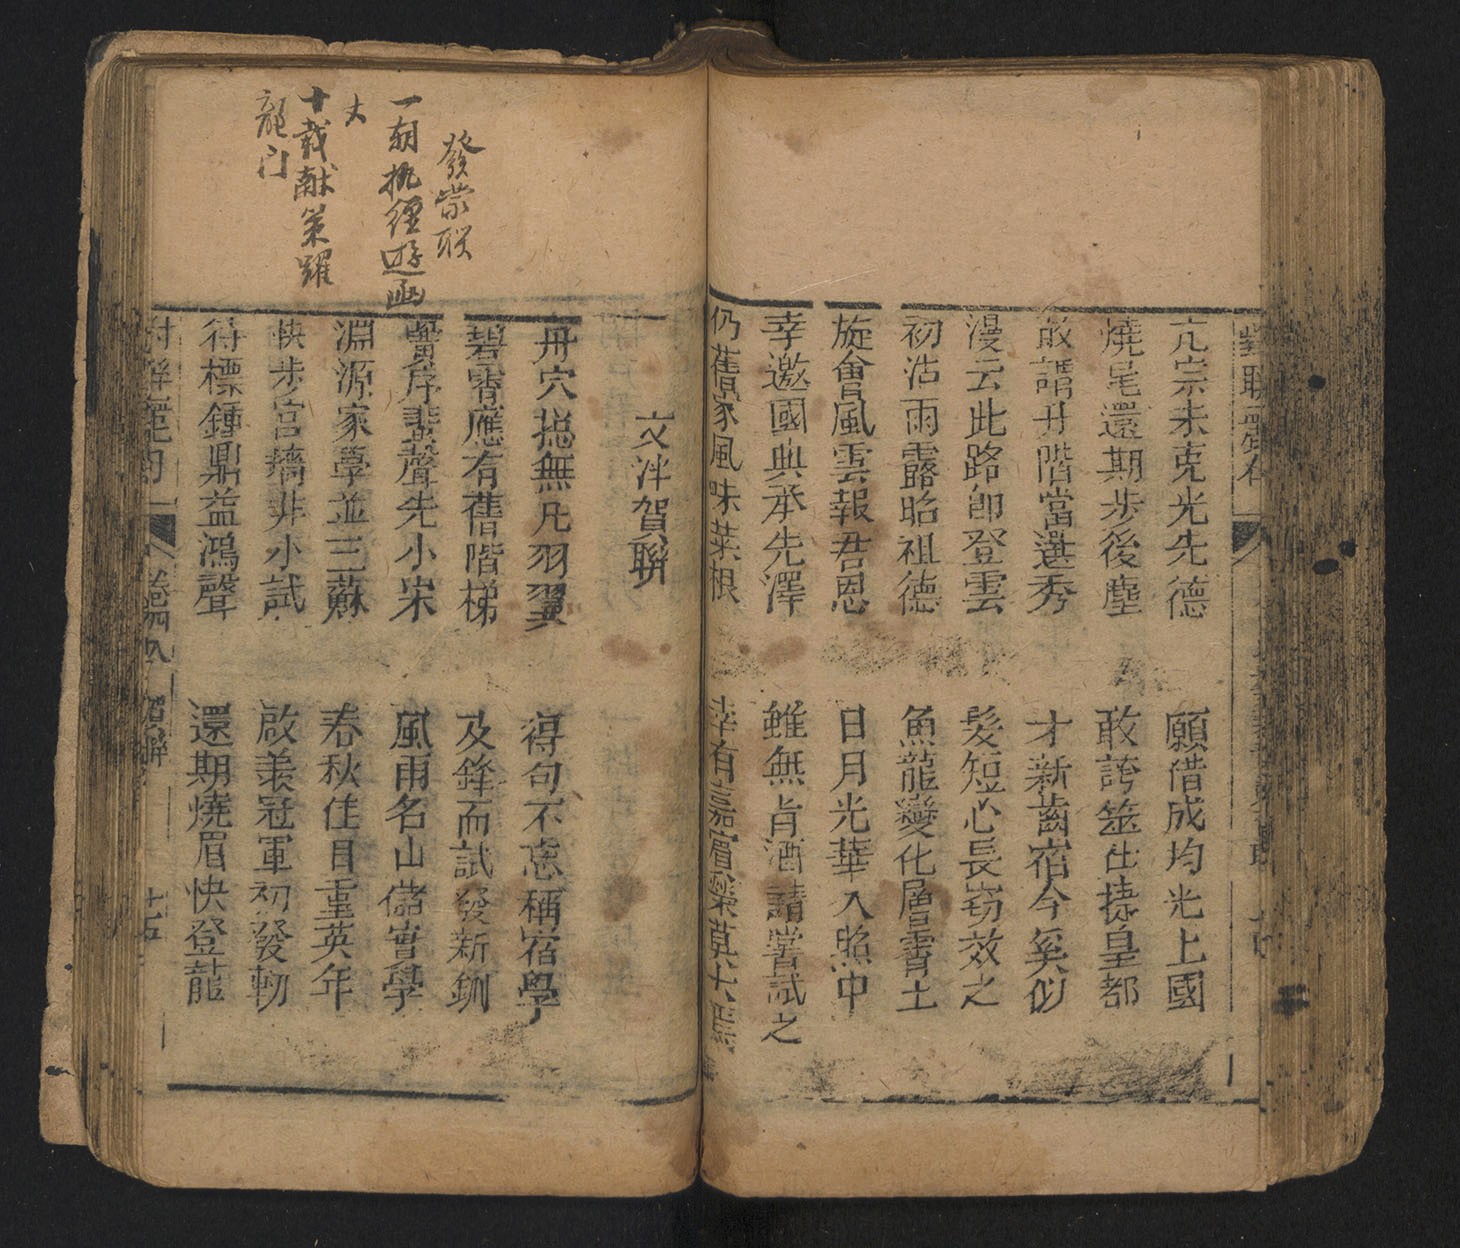 亢宗未克光先德
願借成均光上國
燒尾還期步後塵
敢誇筮仕捷皇都
敢謂升階當選秀
才新齒宿今奚似
漫云此路即登雲
髮短心長竊效之
初沾雨露昭祖德
魚龍變化層霄上
旋會風雲報君恩
日月光華入照中
幸邀國典承先澤
雖無旨酒請嘗試之
仍舊家風味菜根
幸有嘉賓
文泮賀聯
丹穴摠無凡羽翼
得句不忘稱宿學
碧霄應有舊階梯
及鋒而試發新釧
黌序蜚聲先小宋
風雨名山儲實學
淵源家學並三蘇
春秋佳日重英年
快步宮牆非小試
啟羕冠軍初發軔
待標鍾鼎益鴻聲
還期燒眉快登龍
卷四
賀聯
發
联
一朝執經遊函
丈
十载献策躍
龍门